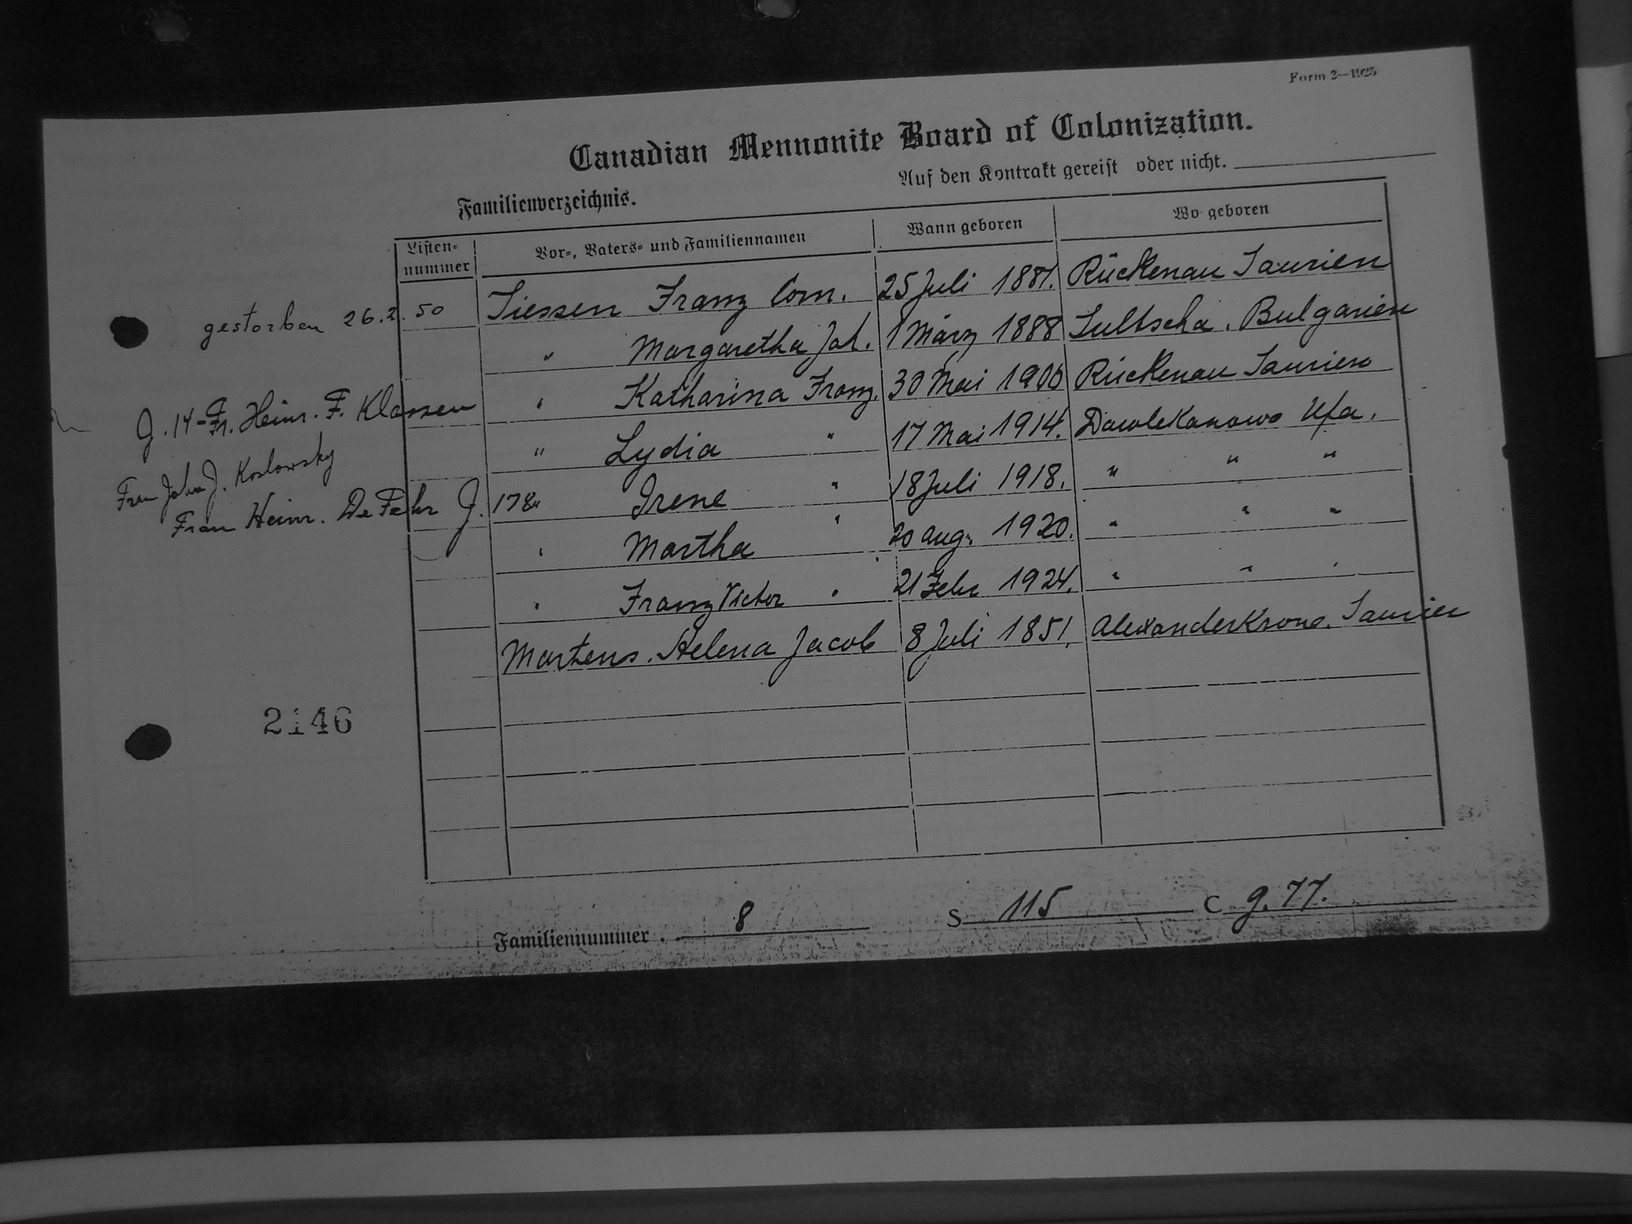 Form 2—1925
Canadian Mennonite Board of Colonization.
Auf den Kontrakt gereist oder nicht.
Familienverzeichnis.
Listen-nummer Vor-, Vaters- und Familiennamen Wann geboren Wo geboren
gestorben 26.2.50 Tiessen Franz Corn. 25 Juli 1881. Rückenau Taurien
" Margaretha Joh. 1 März 1888 Tultscha. Bulgarien
" Katharina Franz. 30 Mai 1906 Rückenau Taurien
J. 14-Fr. Heinr. F. Klassen " Lydia " 17 Mai 1914. Dawlekanowo Ufa.
Frau Joh J. Koslowsky
Frau Heinr. DeFehr J. 178 " Irene " 18 Juli 1918. " " "
" Martha " 20 Aug. 1920. " " "
" Franz Victor " 21 Febr 1924. " " "
Martens. Helena Jacob 8 Juli 1851. Alexanderkrone. Taurien
2146
Familiennummer. 8 S 115 C g. 77.